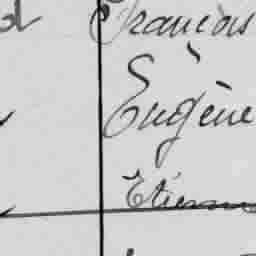 François
Eugène
Etienne